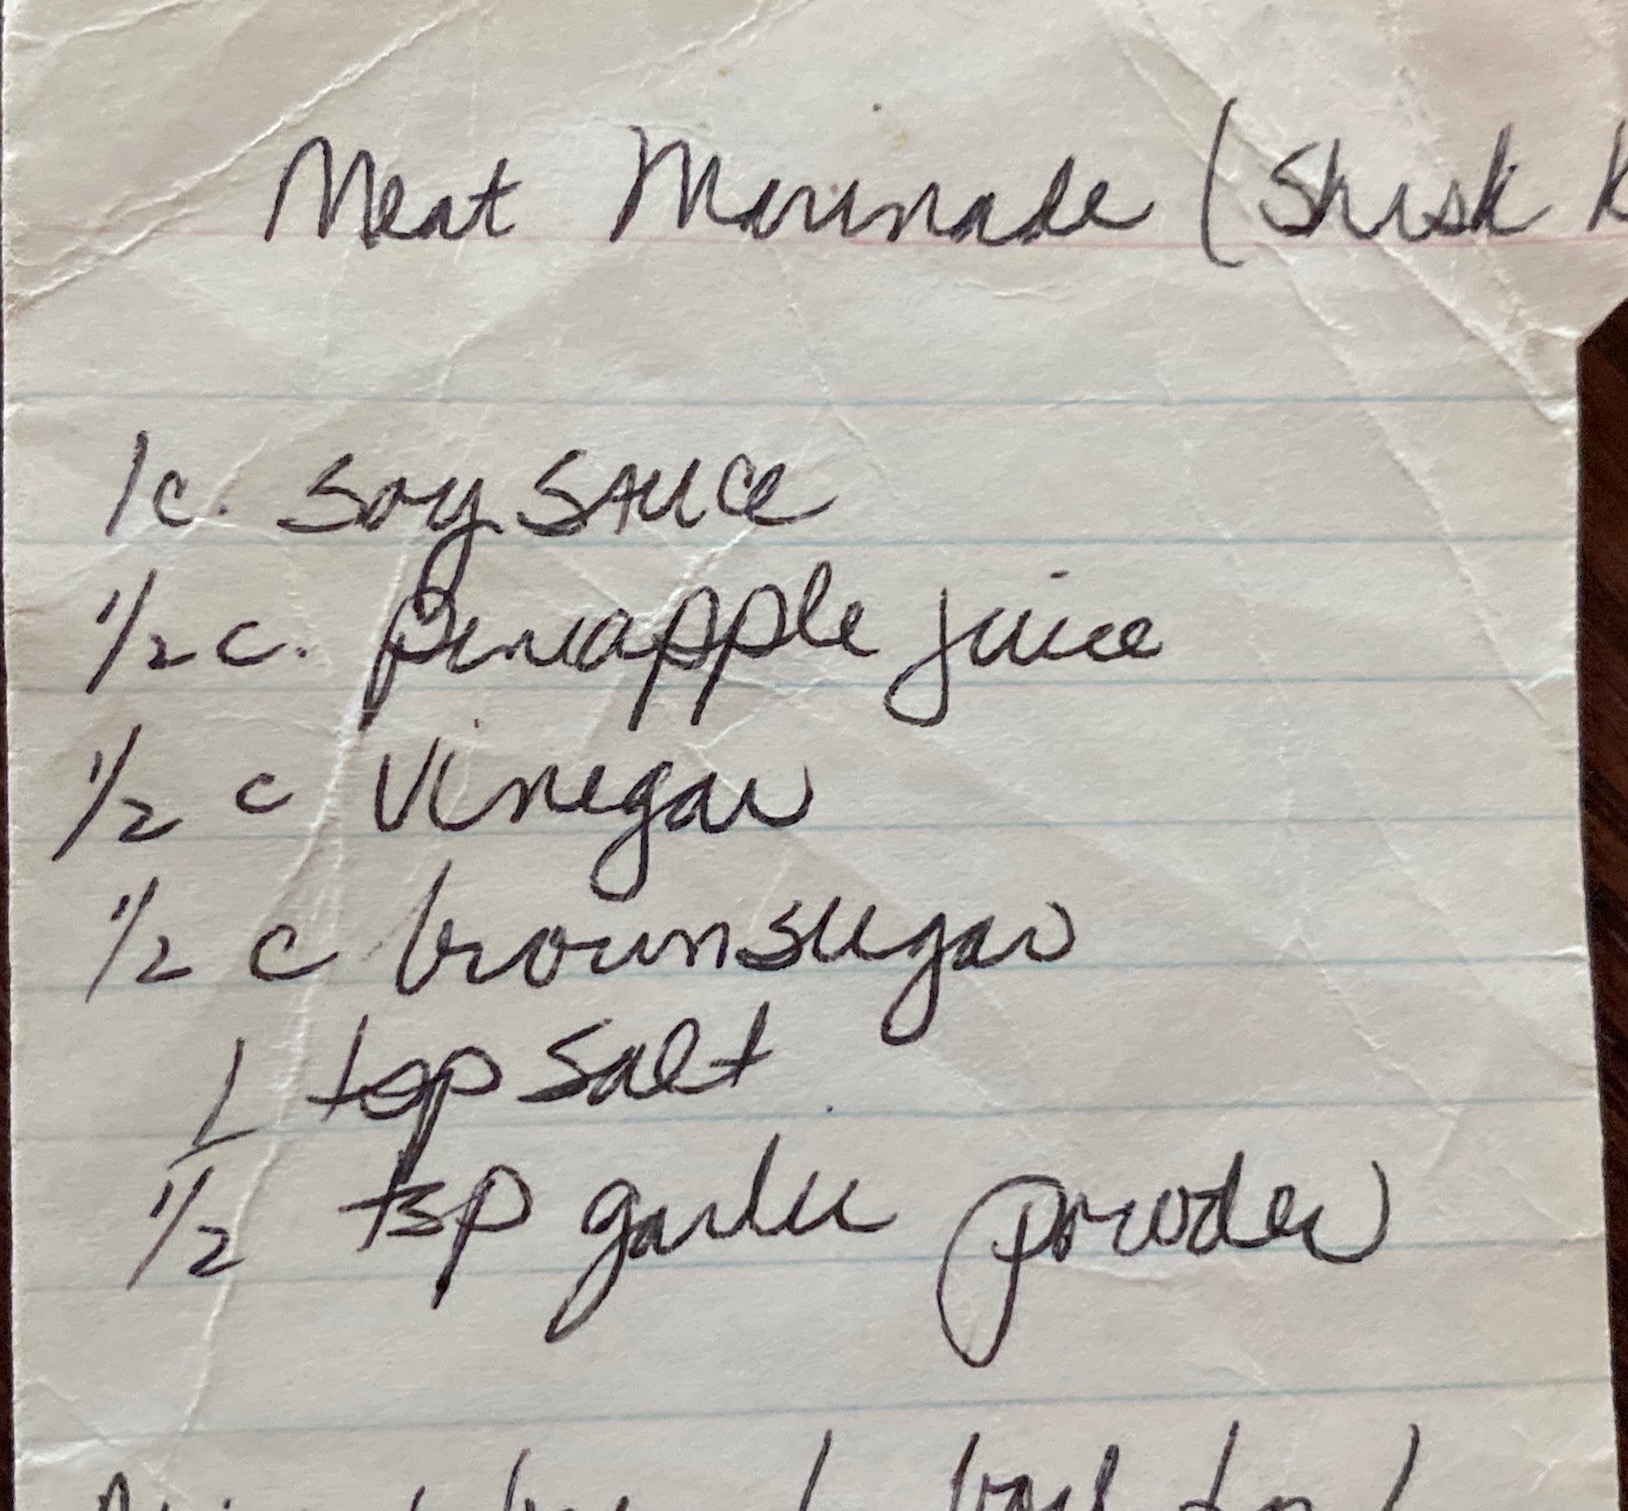 Meat Marinade (Shish K
1c. Soy Sauce
1/2 c. Pineapple juice
1/2 c Vinegar
1/2 c brown sugar
1 tsp Salt
1/2 tsp garlic powder